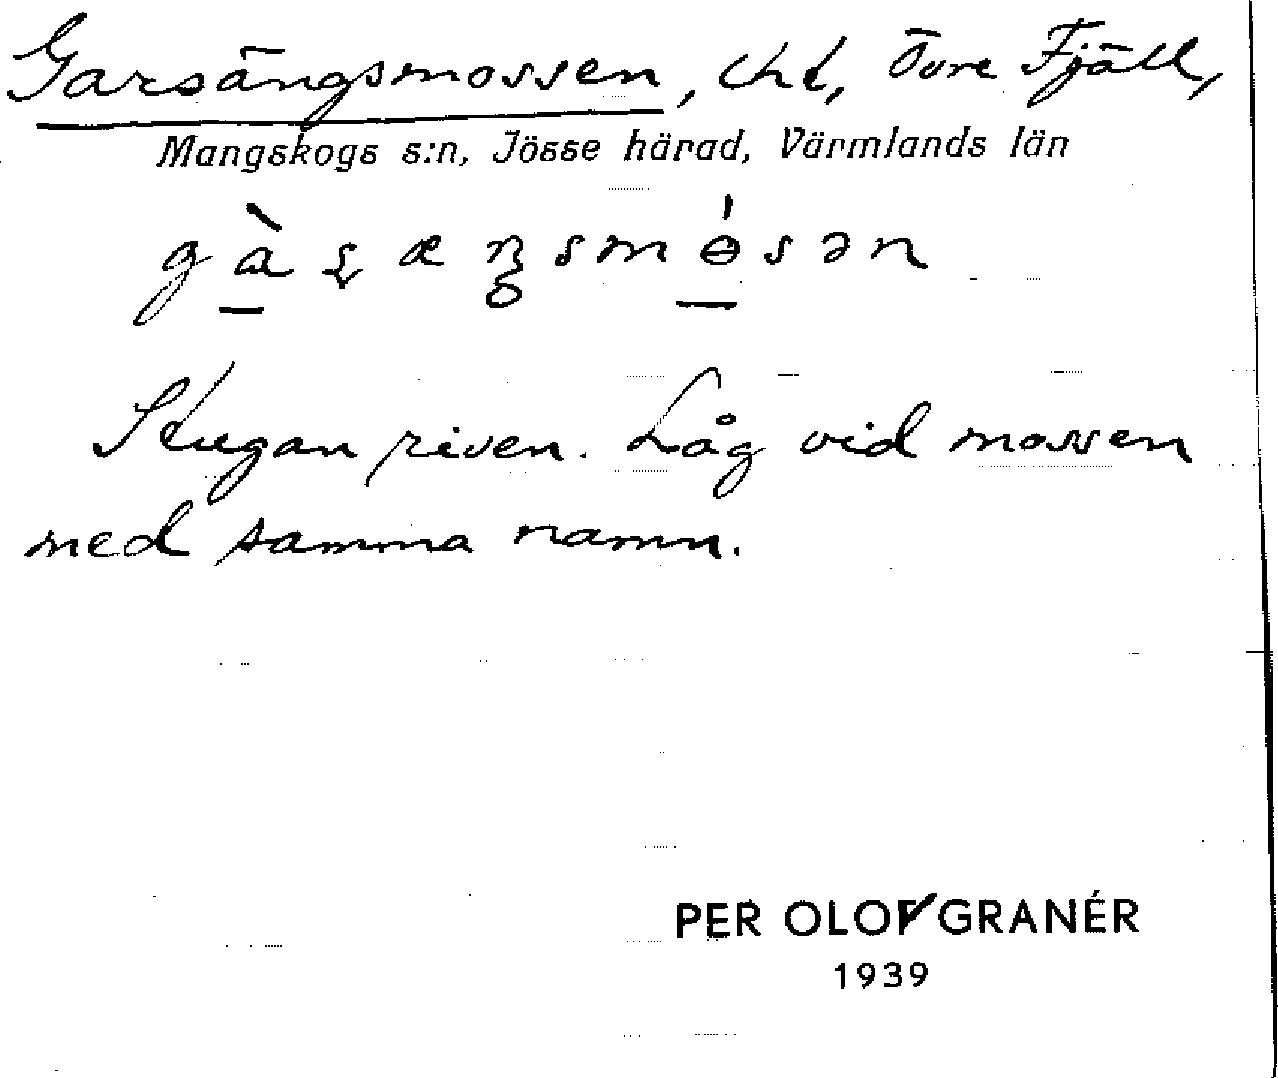 Garsängsmossen, tht, Övre Fjäll,
Mangskogs s:n, Jösse härad, Värmlands län
Stugan riven. Låg vid mossen
med samma namn.
PER OLOF GRANÉR
1939